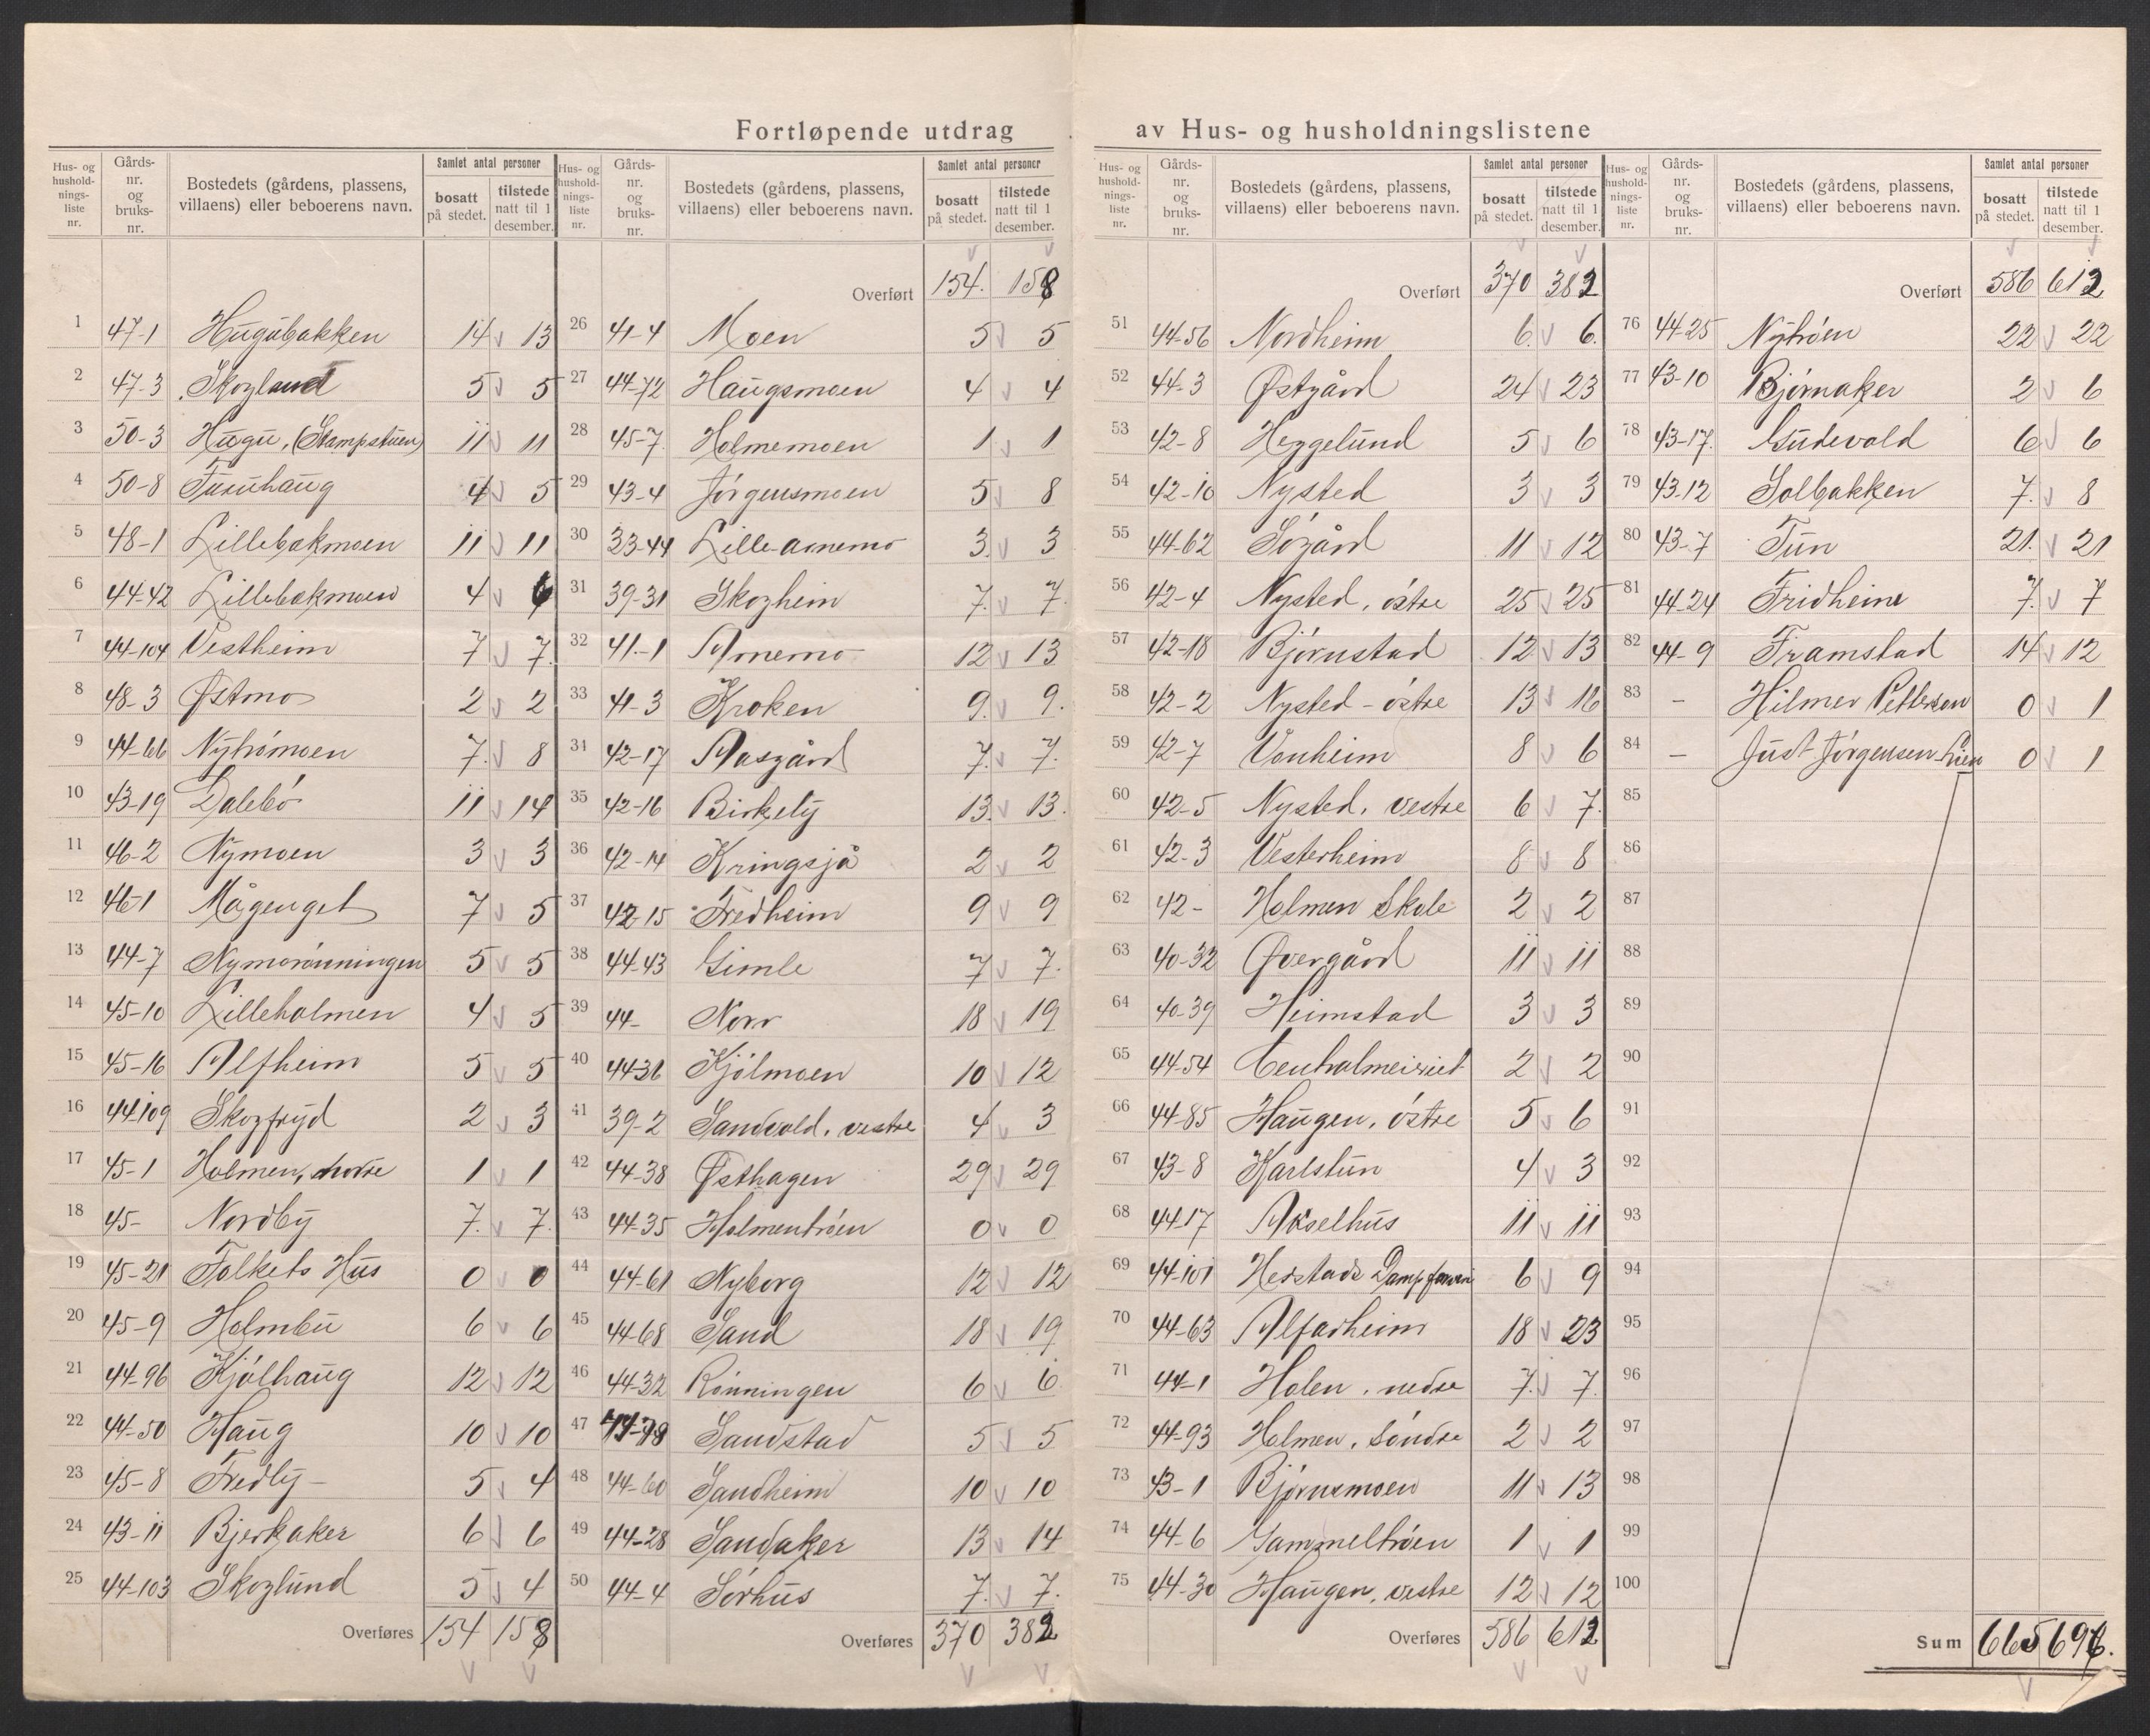 Fortløpende utdrag av Hus- og husholdningslistene
Hus- og husholdnings-liste nr. | Gårds-nr. og bruks-nr. | Bostedets (gårdens, plassens, villaens) eller beboerens navn. | Samlet antal personer | bosatt på stedet. | tilstede natt til 1 desember.
1 47-1 Hugubakken 14 13
2 47-3 Skogland 5 5
3 50-3 Hugu, (Stampstuen) 11 11
4 50-8 Furuhaug 4 5
5 48-1 Lillebakmoen 11 11
6 44-42 Lillebakmoen 4 6
7 44-104 Vestheim 7 7.
8 48-3 Østmo 2 2
9 44-66 Nytrømoen 7. 8
10 43-19 Dalebö 11 14
11 46-2 Nymoen 3 3
12 46-1 Mågenget 7 5
13 44-7 Nymorönningen 5 5
14 45-10 Lilleholmen 4 5
15 45-16 Alfheim 5 5
16 44-109 Skogfryd 2 3
17 45-1 Holmen, 1 1
18 45- Nordby 7. 7.
19 45-21 Folkets Hus 0 0
20 45-9 Holmbu 6 6
21 44-96 Kjölhaug 12 12
22 44-50 Haug 10 10
23 45-8 Fredly 5 4
24 43-11 Bjerkaker 6 6
25 44-103 Skoglund 5 4
Overføres 154 158
Hus- og husholdnings-liste nr. | Gårds-nr. og bruks-nr. | Bostedets (gårdens, plassens, villaens) eller beboerens navn. | Samlet antal personer | bosatt på stedet. | tilstede natt til 1 desember.
Overført 154. 158
26 41-4 Moen 5 5
27 44-72 Haugsmoen 4 4
28 45-7. Holmemoen 1 1
29 43-4 Jörgensmoen 5 8
30 33-44 Lille-Arnemo 3. 3
31 39-31 Skogheim 7. 7.
32 41.-1 Arnemo 12 13
33 41-3 Kroken 9. 9.
34 42-17 Aasgård 7. 7.
35 42-16 Birkely 13. 13.
36 42-14 Kringsjå 2 2
37 42-15 Fredheim 9 9
38 44-43 Gimle 7 7.
39 44- Nor 18 19
40 44-36 Kjölmoen 10 12
41 39-2 Sandvold, vestre 4 3
42 44-38 Østhagen 29 29
43 44-35 Holmentröen 0 0
44 44-61 Nyborg 12 12
45 44-68 Sand 18 19
46 44-32 Rönningen 6 6
47 Sandstad 5 5
48 44-60 Sandheim 10 10
49 44-28 Sandaker 13 14
50 44-4 Sörhus 7. 7.
Overføres 370 382
Hus- og husholdnings-liste nr. | Gårds-nr. og bruks-nr. | Bostedets (gårdens, plassens, villaens) eller beboerens navn. | Samlet antal personer | bosatt på stedet. | tilstede natt til 1 desember.
Overført 370 382
51 44-56 Nordheim 6. 6.
52 44-3 Østgård 24 23
53 42-8 Heggelund 5 6
54 42-10 Nysted 3 3
55 44-62 Sögård 11 12
56 42-4 Nysted, östre 25 25
57 42-18 Björnstad 12 13
58 42-2 Nysted - östre 13 16
59 42-7 Vonheim 8 6
60 42-5 Nysted, vestre 6 7.
61 42-3 Vesterheim 8 8
62 42- Holmen Skole 2 2
63 40-32 Øvergård 11 11
64 40-39 Heimstad 3 3
65 44-54 Centralmeieriet 2 2
66 44-85 Haugen, östre 5 6
67 43-8 Karlstun 4 3
68 44-17 Akselhus 11 11
69 44-101 Herstads 6 9
70 44-63 Alfarheim 18 23
71 44-1 Holen, nedre 7. 7.
72 44-93 Holmen, söndre 2 2
73 43-1 Björnsmoen 11 13
74 44-6 Gammeltröen 1 1
75 44-30 Haugen, vestre 12 12
Overføres 586 612
Hus- og husholdnings-liste nr. | Gårds-nr. og bruks-nr. | Bostedets (gårdens, plassens, villaens) eller beboerens navn. | Samlet antal personer | bosatt på stedet. | tilstede natt til 1 desember.
Overført 586 612
76 44-25 Nytröen 22 22
77 43-10 Björnaker 2 6
78 43-17. Gudevold 6 6
79 43-12 Solbakken 7. 8
80 43-7 Tun 21. 21
81 44-24 Fridheim 7. 7
82 44-9 Framstad 14 12
83 - Hilmer Pettersen 0 1
84 - Just Jörgensen Lien 0 1
85
86
87
88
89
90
91
92
93
94
95
96
97
98
99
100
Sum 665 696.